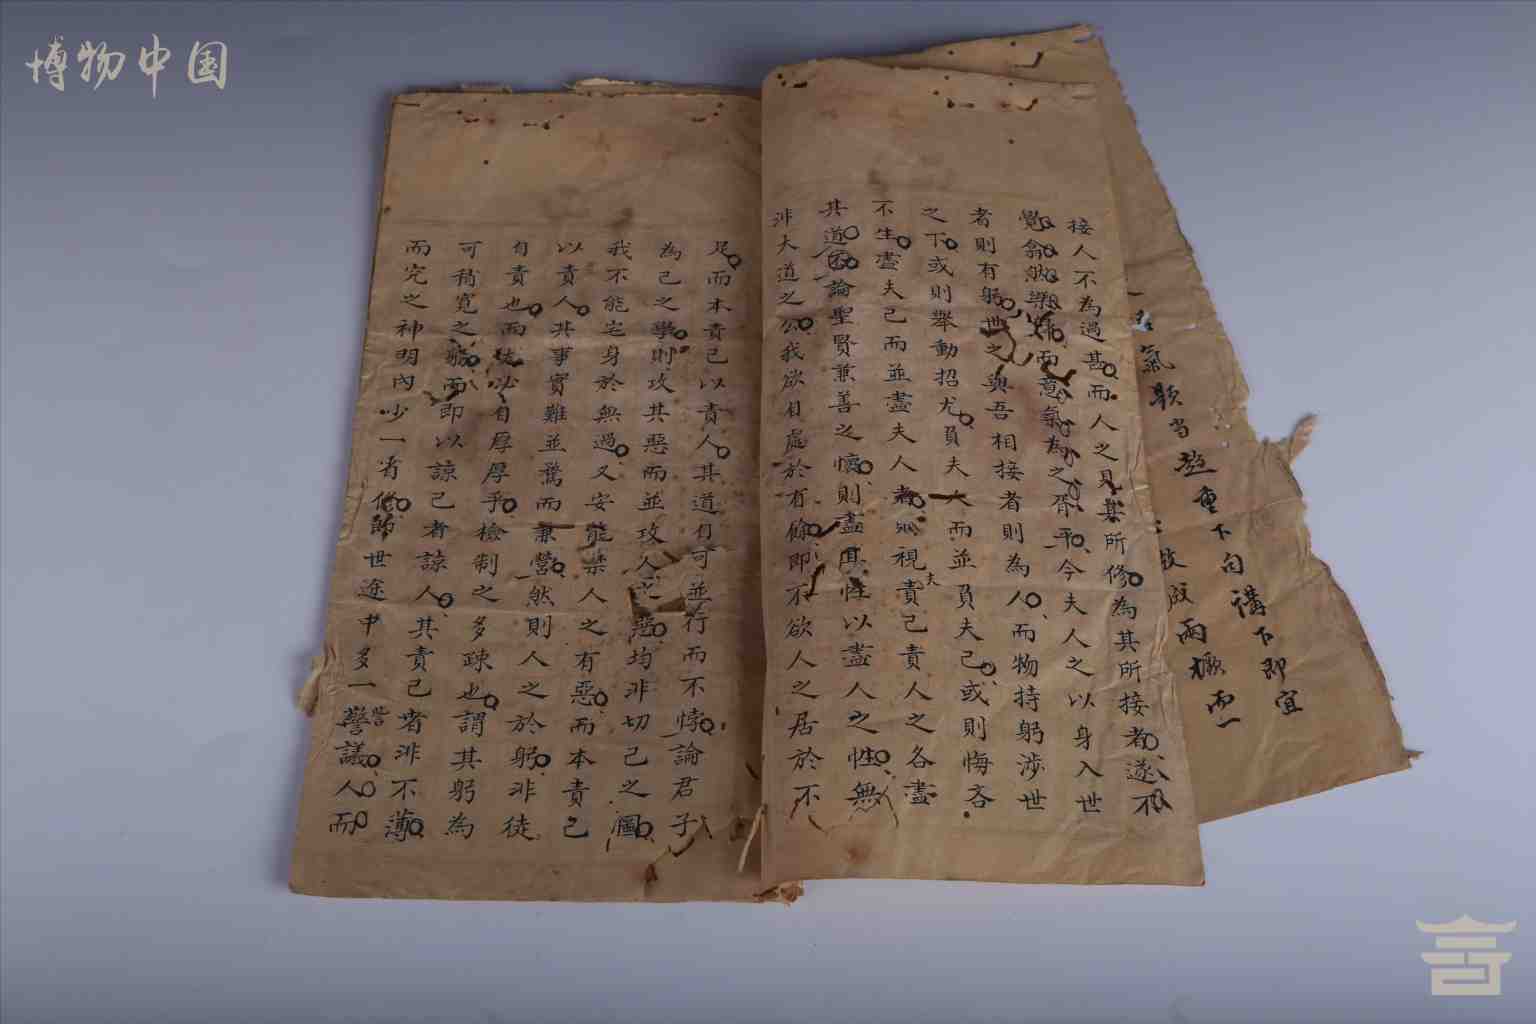 博物中国
氣題当趁重下句講下即宜
故成兩橛而
接人不為過甚而人之見其所修為其所接者遂不
覺翕然樂就而意氣為之胥平今夫人之以身入世
者則有躬世之與吾相接者則為人而物持躬涉世
之下或則舉動招尤負夫人而並負夫己或則悔吝
不生盡夫己而並盡夫人者以視責己責人之各盡
其道論聖賢兼善之懷則盡其性以盡人之性無
非大道之公我欲自處於有餘即不欲人之居於不
足而本責己以責人其道有可並行而不悖論君子
為己之學則攻其惡而並攻人惡均非切己之圖
我不能宅身於無過又安能禁人之有惡而本責己
以責人其事實難並騖而兼營然則人之於躬非徒
自責也而必自厚厚乎檢制之多疎也謂其躬為
可稍寬之躬而即以諒己者諒人其責己者非不薄
而究之神明內少一省師世途中多一訾議人而